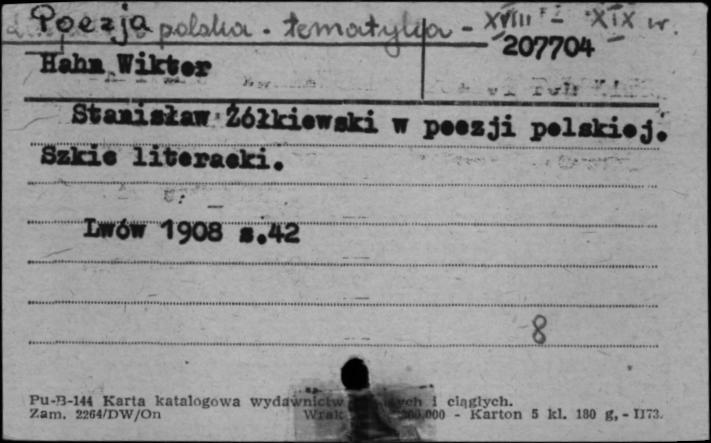 Poezja polska - tematyka - XVIII - XIX w.
207704
Hahn Wiktor
Stanisław Żółkiewski w poezji polskiej.
Szkic literacki.
Lwów 1908 s.42
8
Pu-B-144 Karta katalogowa wydawnictw i ciągłych.
Zam. 2264/DW/On 000 - Karton 5 kl. 180 g, - II73.